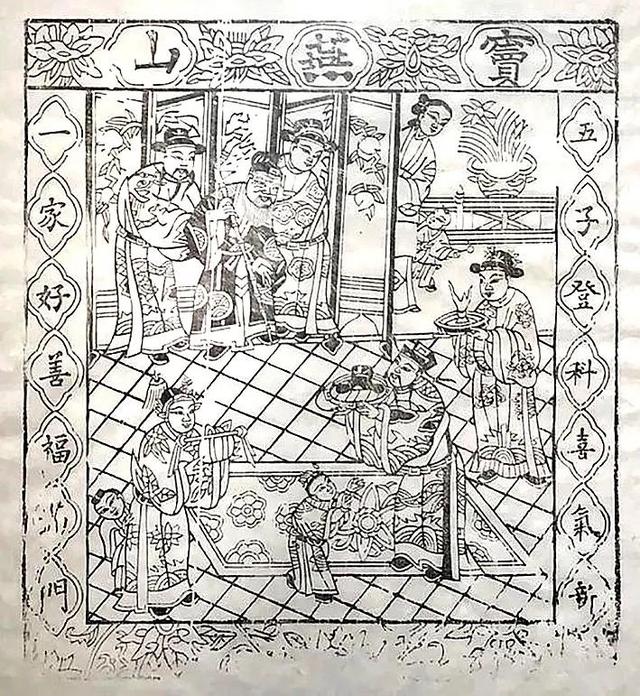 竇燕山
五子登科喜氣新
一家好善福門